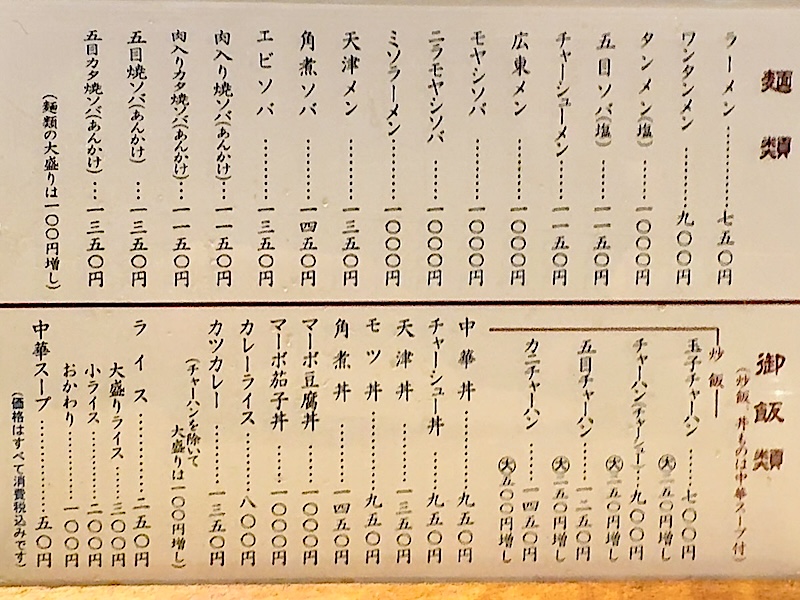 麺類
ラーメン………七五〇円
ワンタンメン………九〇〇円
タンメン(塩)……一〇〇〇円
五目ソバ(塩)……一一五〇円
チャーシューメン……一一五〇円
広東メン………一〇〇〇円
モヤシソバ………一〇〇〇円
ニラモヤシソバ………一〇〇〇円
ミソラーメン………一〇〇〇円
天津メン………一三五〇円
角煮ソバ………一四五〇円
エビソバ………一三五〇円
肉入り焼ソバ(あんかけ)…一一五〇円
肉入りカタ焼ソバ(あんかけ)…一一五〇円
五目焼ソバ(あんかけ)…一三五〇円
五目カタ焼ソバ(あんかけ)…一三五〇円
(麺類の大盛りは一〇〇円増し)
御飯類
(炒飯、丼ものは中華スープ付)
炒飯
玉子チャーハン……七〇〇円
大二五〇円増し
チャーハン(チャーシュー)…九〇〇円
大二五〇円増し
五目チャーハン……一二五〇円
大二五〇円増し
カニチャーハン……一四五〇円
大五〇〇円増し
中華丼………九五〇円
チャーシュー丼……九五〇円
天津丼………一三五〇円
モツ丼………九五〇円
角煮丼………一四五〇円
マーボ豆腐丼……一〇〇〇円
マーボ茄子丼……一〇〇〇円
カレーライス………八〇〇円
カツカレー………一三五〇円
(チャーハンを除いて
大盛りは一〇〇円増し)
ライス………二五〇円
大盛りライス……三〇〇円
小ライス………二〇〇円
おかわり………一〇〇円
中華スープ………五〇円
(価格はすべて消費税込みです)